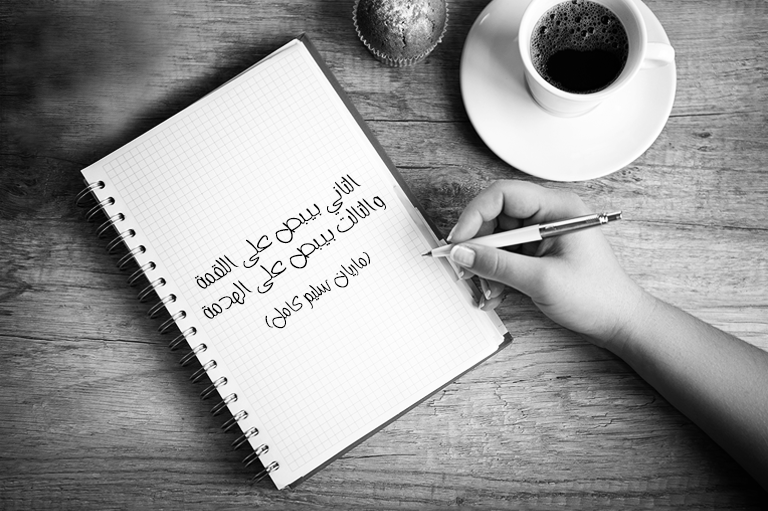 التاني بيبص على اللقمة
والتالت بيبص على الهدمة
(ماريان سليم كامل)